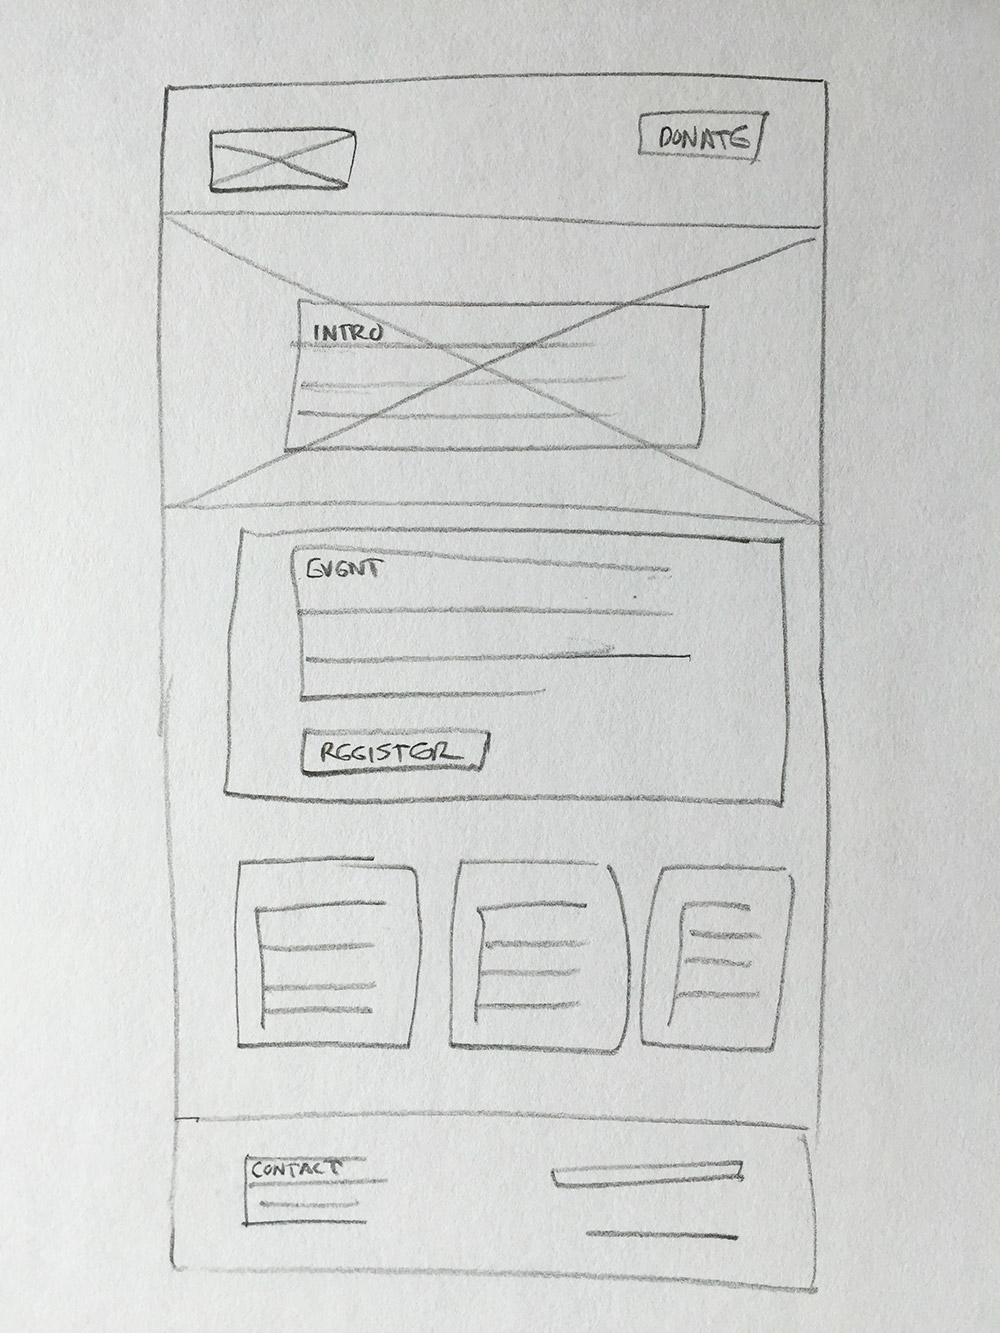 DONATE
INTRO
EVENT
REGISTER
CONTACT